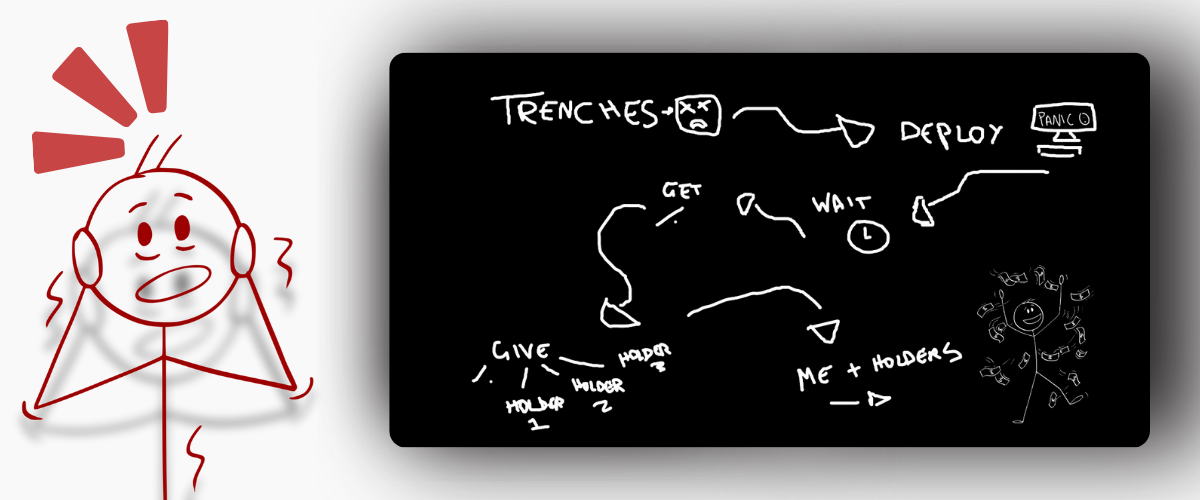 TRENCHES
DEPLOY
PANIC O
WAIT
GET
GIVE
HOLDER 1
HOLDER 2
HOLDER 3
ME + HOLDERS